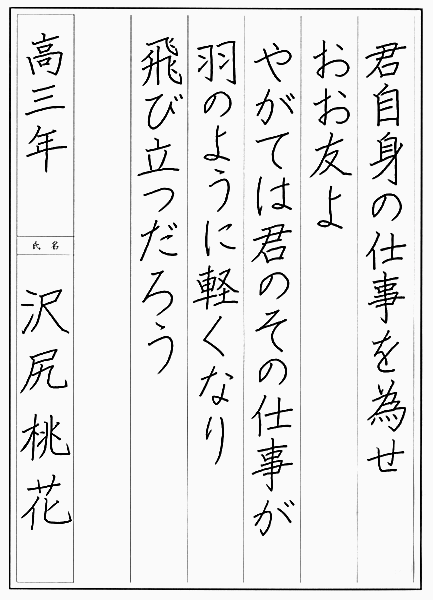 君自身の仕事を為せ
おお友よ
やがては君のその仕事が
羽のように軽くなり
飛び立つだろう
高三年
氏名
沢尻桃花